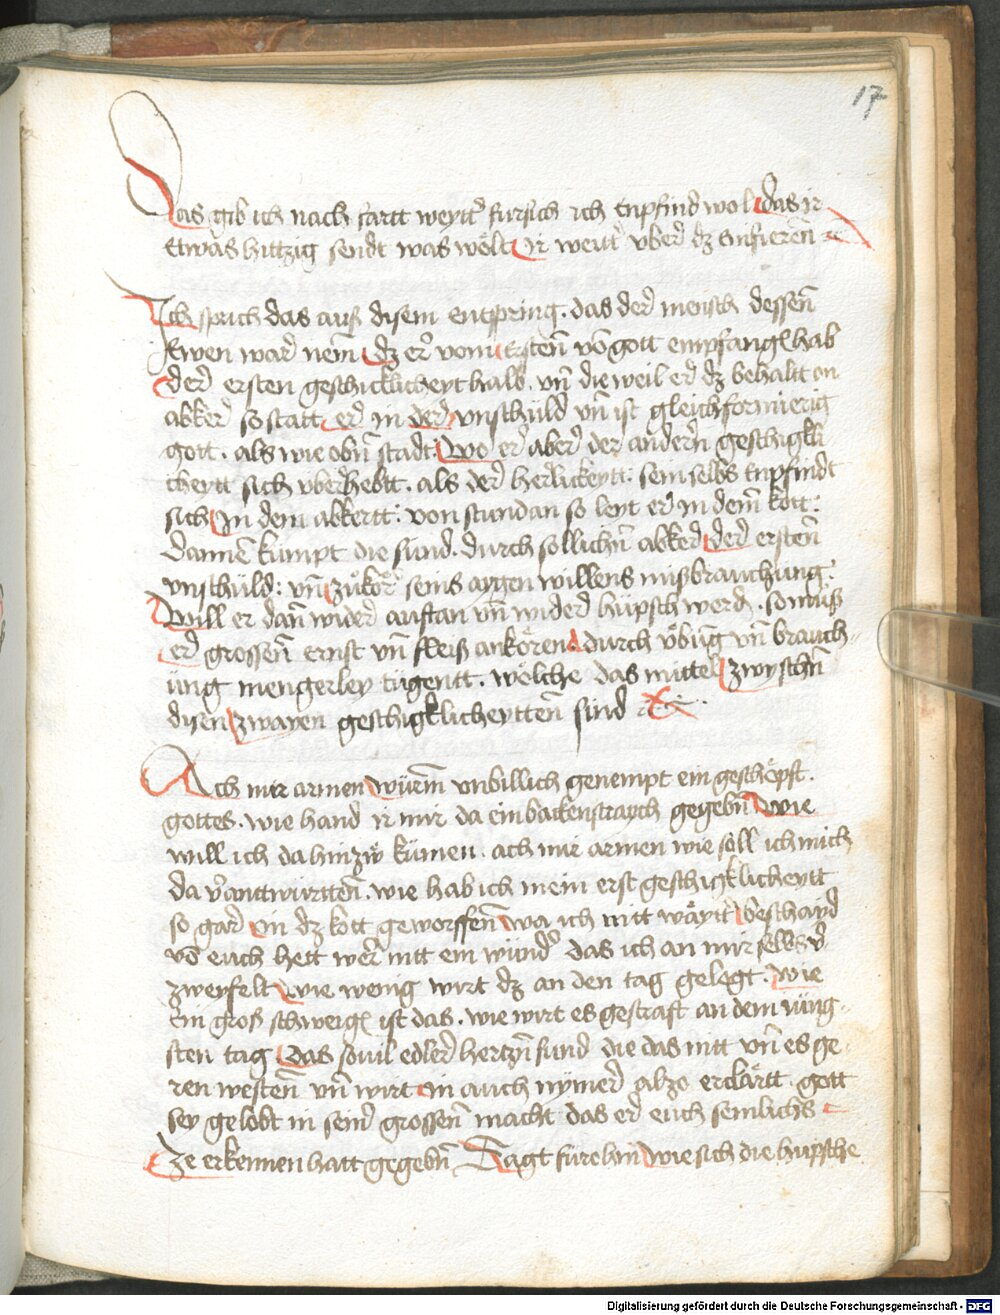 17
Das gib ich nach fartt weytt' fursich ich Enpfind wol das ir
Etwas hittzig sendt was wölt ir weitt' vber dz einfieren ⁊c
Ich sprich das auß disem entspring. das der mensch dessen
wen ward nem dz er vom Ersten vō gott empfangen hab
der ersten geschicklicheyt halb. vn̄ die weil er dz behaltt on
abker so statt er in der vnschuld vn̄ ist gleichformierig
gott. als wie obn̄ stadt. Wo er aber der andern geschigkli
cheytt sich vberhebtt. als der herlickeytt. sein selbs Enpfindt
sich In dem abkertt: von stund an so leyt er in dem kott:
dannen kumpt die sund. durch sollichn̄ abker der ersten
vnschuld: vn̄ zukör seins aygen willens mißbrauchung.
Will er dan̄ wider aufstan vn̄ wider hüpsch werd. so muß
er grossen ernst vn̄ fleiß ankören durch vöbung vn̄ brauch-
ung mengerley tügentt. wölche das mittel zwyschn̄
disen zwayen geschigklicheytten sind ⁊c.
Ach mir armen würm vnbillich genempt ein geschöpft.
gottes. wie hand ir mir da ein backenstraych gegebn̄ wie
will ich da hinzů kumen. ach mir armen wie soll ich mich
da v'antwürtten. wie hab ich mein erst geschigklicheytt
so gar in dz kott geworffen wa ich nitt wäytt' beschayd
vō euch hett wer nitt ein wund' das ich an mir selbs v'
zweyfelt wie wenig wirt dz an den tag gelegt. wie
Ein groß schweigen ist das. wie wirt es gestraft an dem iüng-
sten tag Das souil edler hertzn̄ sund die das nitt vn̄ es ge-
ren westen vn̄ wirt in auch nymer also erclärtt. gott
sey gelobt in seiner grossen macht das er euch semlichs
ze erkennen hatt gegebn̄ Sagt fürohin wie sich die hüpsche
Digitalisierung gefördert durch die Deutsche Forschungsgemeinschaft - DFG